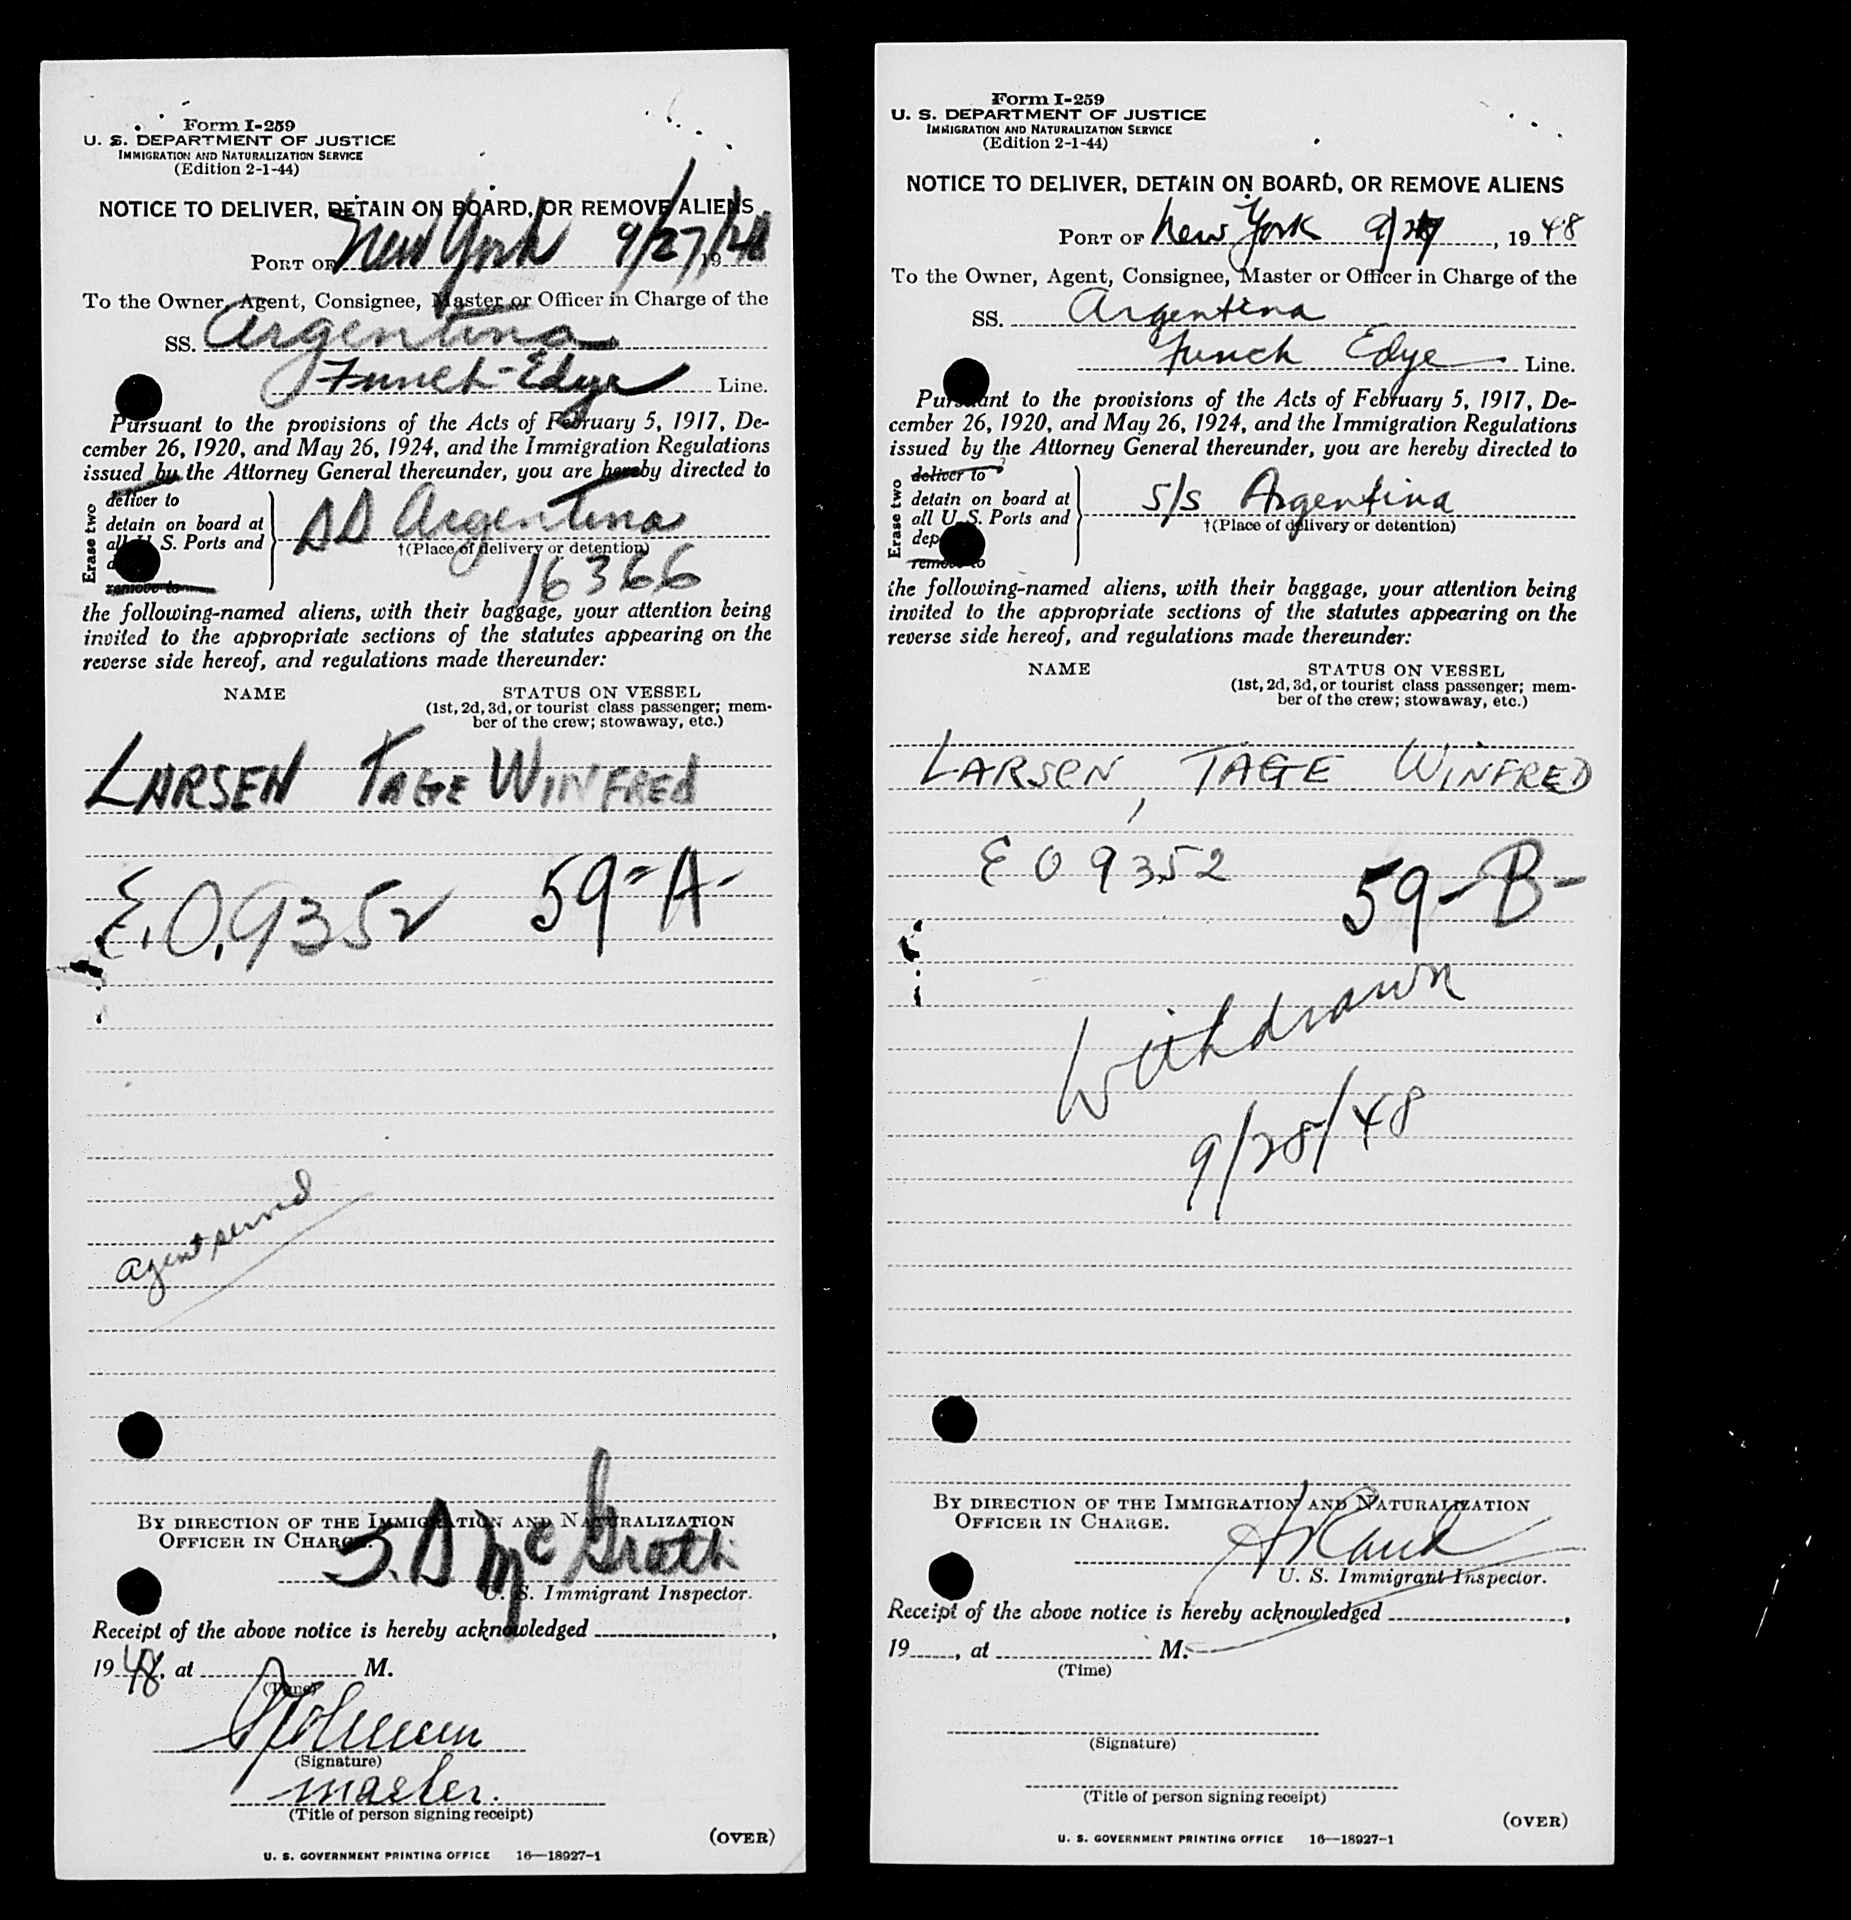 Form I-259
U. S. DEPARTMENT OF JUSTICE
IMMIGRATION AND NATURALIZATION SERVICE
(Edition 2-1-44)
NOTICE TO DELIVER, DETAIN ON BOARD, OR REMOVE ALIENS
PORT OF New York 9/27/48 19
To the Owner, Agent, Consignee, Master or Officer in Charge of the
SS. Argentina
Funch-Edye Line.
Pursuant to the provisions of the Acts of February 5, 1917, De-
cember 26, 1920, and May 26, 1924, and the Immigration Regulations
issued by the Attorney General thereunder, you are hereby directed to
Erase two
deliver to
detain on board at
all U. S. Ports and
remove to
SS Argentina
†(Place of delivery or detention)
16366
the following-named aliens, with their baggage, your attention being
invited to the appropriate sections of the statutes appearing on the
reverse side hereof, and regulations made thereunder:
NAME STATUS ON VESSEL
(1st, 2d, 3d, or tourist class passenger; mem-
ber of the crew; stowaway, etc.)
LARSEN TAGE WINFRED
E.O.9352 59-A-
agent served
BY DIRECTION OF THE IMMIGRATION AND NATURALIZATION
OFFICER IN CHARGE.
S.D McGrath
U. S. Immigrant Inspector.
Receipt of the above notice is hereby acknowledged ,
19 48, at M.
(Time)
(Signature)
master.
(Title of person signing receipt)
(OVER)
U. S. GOVERNMENT PRINTING OFFICE 16—18927-1
Form I-259
U. S. DEPARTMENT OF JUSTICE
IMMIGRATION AND NATURALIZATION SERVICE
(Edition 2-1-44)
NOTICE TO DELIVER, DETAIN ON BOARD, OR REMOVE ALIENS
PORT OF New York 9/27, 19 48
To the Owner, Agent, Consignee, Master or Officer in Charge of the
SS. Argentina
Funch Edye Line.
Pursuant to the provisions of the Acts of February 5, 1917, De-
cember 26, 1920, and May 26, 1924, and the Immigration Regulations
issued by the Attorney General thereunder, you are hereby directed to
Erase two
deliver to
detain on board at
all U. S. Ports and
dep
remove to
S/S Argentina
†(Place of delivery or detention)
the following-named aliens, with their baggage, your attention being
invited to the appropriate sections of the statutes appearing on the
reverse side hereof, and regulations made thereunder:
NAME STATUS ON VESSEL
(1st, 2d, 3d, or tourist class passenger; mem-
ber of the crew; stowaway, etc.)
LARSEN, TAGE WINFRED
E O 9352 59-B-
Withdrawn
9/28/48
BY DIRECTION OF THE IMMIGRATION AND NATURALIZATION
OFFICER IN CHARGE.
U. S. Immigrant Inspector.
Receipt of the above notice is hereby acknowledged ,
19 , at M.
(Time)
(Signature)
(Title of person signing receipt)
(OVER)
U. S. GOVERNMENT PRINTING OFFICE 16—18927-1